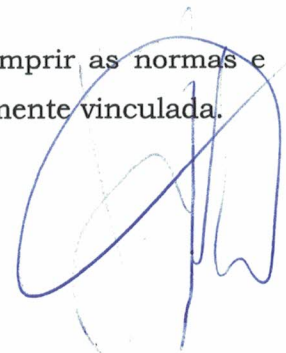 mprir as normas e
mente vinculada.